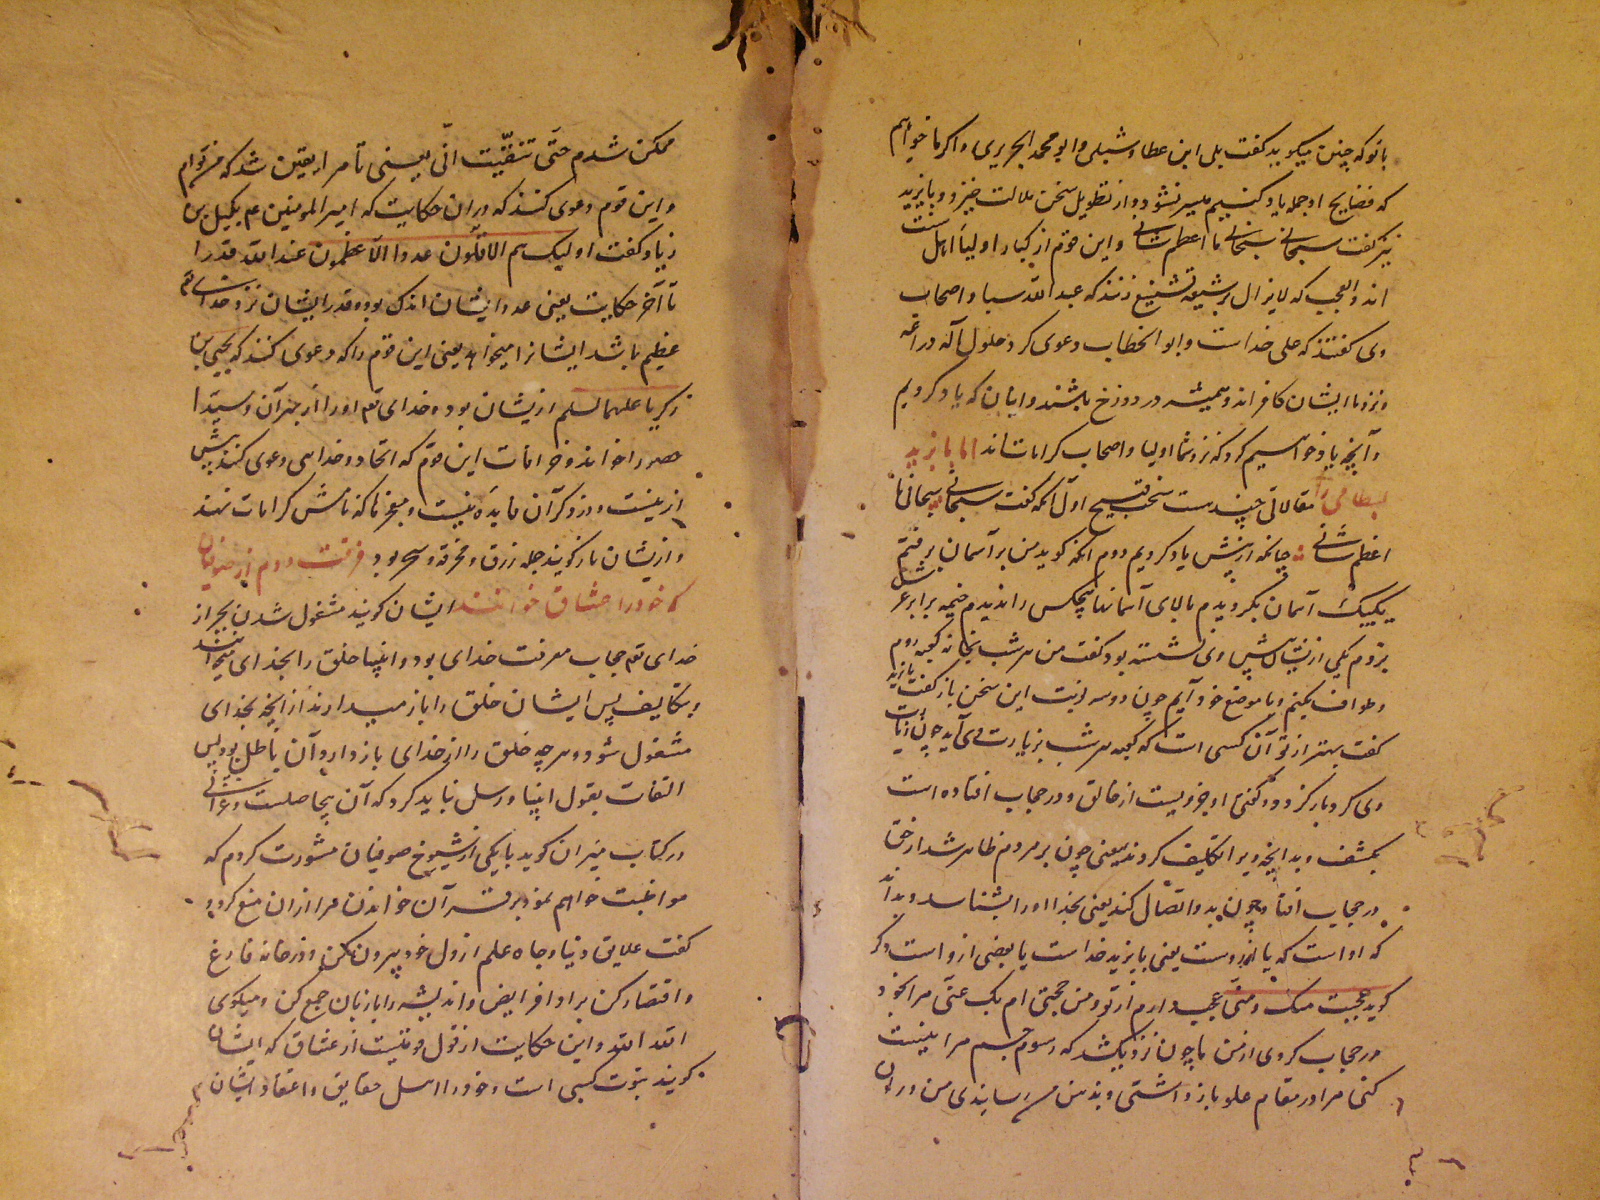 با تو که چنین میگوید گفت بلی ابن عطا و شبلی و ابو محمد الجریری و اگر ما خواهیم
که فضایح او جمله یاد کنیم میسر نشود و از تطویل سخن ملالت خیزد و بایزید
نیز گفت سبحانی سبحانی ما اعظم شانی و این قوم از کبار اولیا اهل سنت
اند و العجب که لایزال بر شیعه تشنیع زنند که عبد الله سبا و اصحاب
وی گفتند که علی خداست و ابو الخطاب دعوی کرد حلول اله در ائمه
و نزد ما ایشان کافراند و همیشه در دوزخ باشند و اینان که یاد کردیم
و آنچه یاد خواهیم کرد که نزد شما اولیا و اصحاب کراماتاند اما بایزید
بسطامی را مقالاتی چند هست سخت قبیح اول آنکه گفت سبحانی سبحانی ما
اعظم شانی چنانکه از پیش یاد کردیم دوم آنکه گوید من بر آسمان برفتم
یکییک آسمان بگردیدم بالای آسمانها هیچکس را ندیدم خیمه برابر عرش
بزدم یکی از پیش وی نشسته بود گفت من هر شب بخانه کعبه روم
و طواف بکنم و با موضع خود آیم چون دو سه نوبت این سخن باز گفت بایزید
گفت بهتر از تو آن کسی است که کعبه هر شب بزیارت وی آید چون زیارت
وی کرد باز گردد و گفتی او جزویست از خالق و در حجاب افتاده است
بکشف و بدانچه ویرا تکلیف کردند یعنی چون بر مردم ظاهر شد از حق
در حجاب افتاد چون بدو اتصال کند یعنی بخدا او را بشناسد و بداند
که او است که با نزدوست یعنی بایزید خداست یا بعضی ازو است و گر
گوید عجبت منک و منی عجب دارم از تو و من حجبتنی ام بک عنی مرا بخود
در حجاب کردی از من تا چون نزدیک شد که رسوم جسم مرا نیست
کنی مرا در مقام علو باز داشتی و بدمن رسانیدی من در آن
ممکن شدم حتی تیقنت انی یعنی تا مرا یقین شد که من توام
و این قوم دعوی کنند که در آن حکایت که امیر المومنین ع م بکمیل بن
زیاد گفت اولیک هم الاقلون عددا الاعظمون عند الله قدرا
تا آخر حکایت یعنی عدد ایشان اندک بود و قدر ایشان نزد خدای تع
عظیم باشد ایشانرا میخواهد یعنی این قوم را که دعوی کنند که یحیی بن
زکریا علیهما السلم ازیشان بوده خدای تع او را از بهر آن و سیدا
حصورا خواند و خرافات این قوم که اتحاد و خدایی دعوی کنند بیش
ازینست و در ذکر آن فایده نیست و معجزها که نامش کرامات نهند
و ازیشان باز گویند جمله زرق و مخرقه و سحر بود فرقت دوم از صوفیان
که خود را عشاق خوانند ایشان گویند مشغول شدن بجز از
خدای تع حجاب معرفت خدای بود و انبیا خلق را بخدای میخوانند
بتکالیف پس ایشان خلق را باز میدارند از آنچه بخدای
مشغول شود و هرچه خلق را از خدای باز دارد آن باطل بود پس
التفات بقول انبیا و رسل نباید کرد که آن بیحاصلست و غزالی
در کتاب میزان گوید با یکی از شیوخ صوفیان مشورت کردم که
مواظبت خواهم نمود بر قرآن خواندن مرا از آن منع کرد و
گفت علایق دنیا و جاه علم از دل خود بیرون کن و در خانه فارغ
و اقتصار کن بر ادا فرایض و اندیشه را با زبان جمع کن و میگوی
الله الله و این حکایت از قول فرقتیست از عشاق که ایشان
گویند نبوت کسبی است و خود را اهل حقایق و اعتقاد ایشان